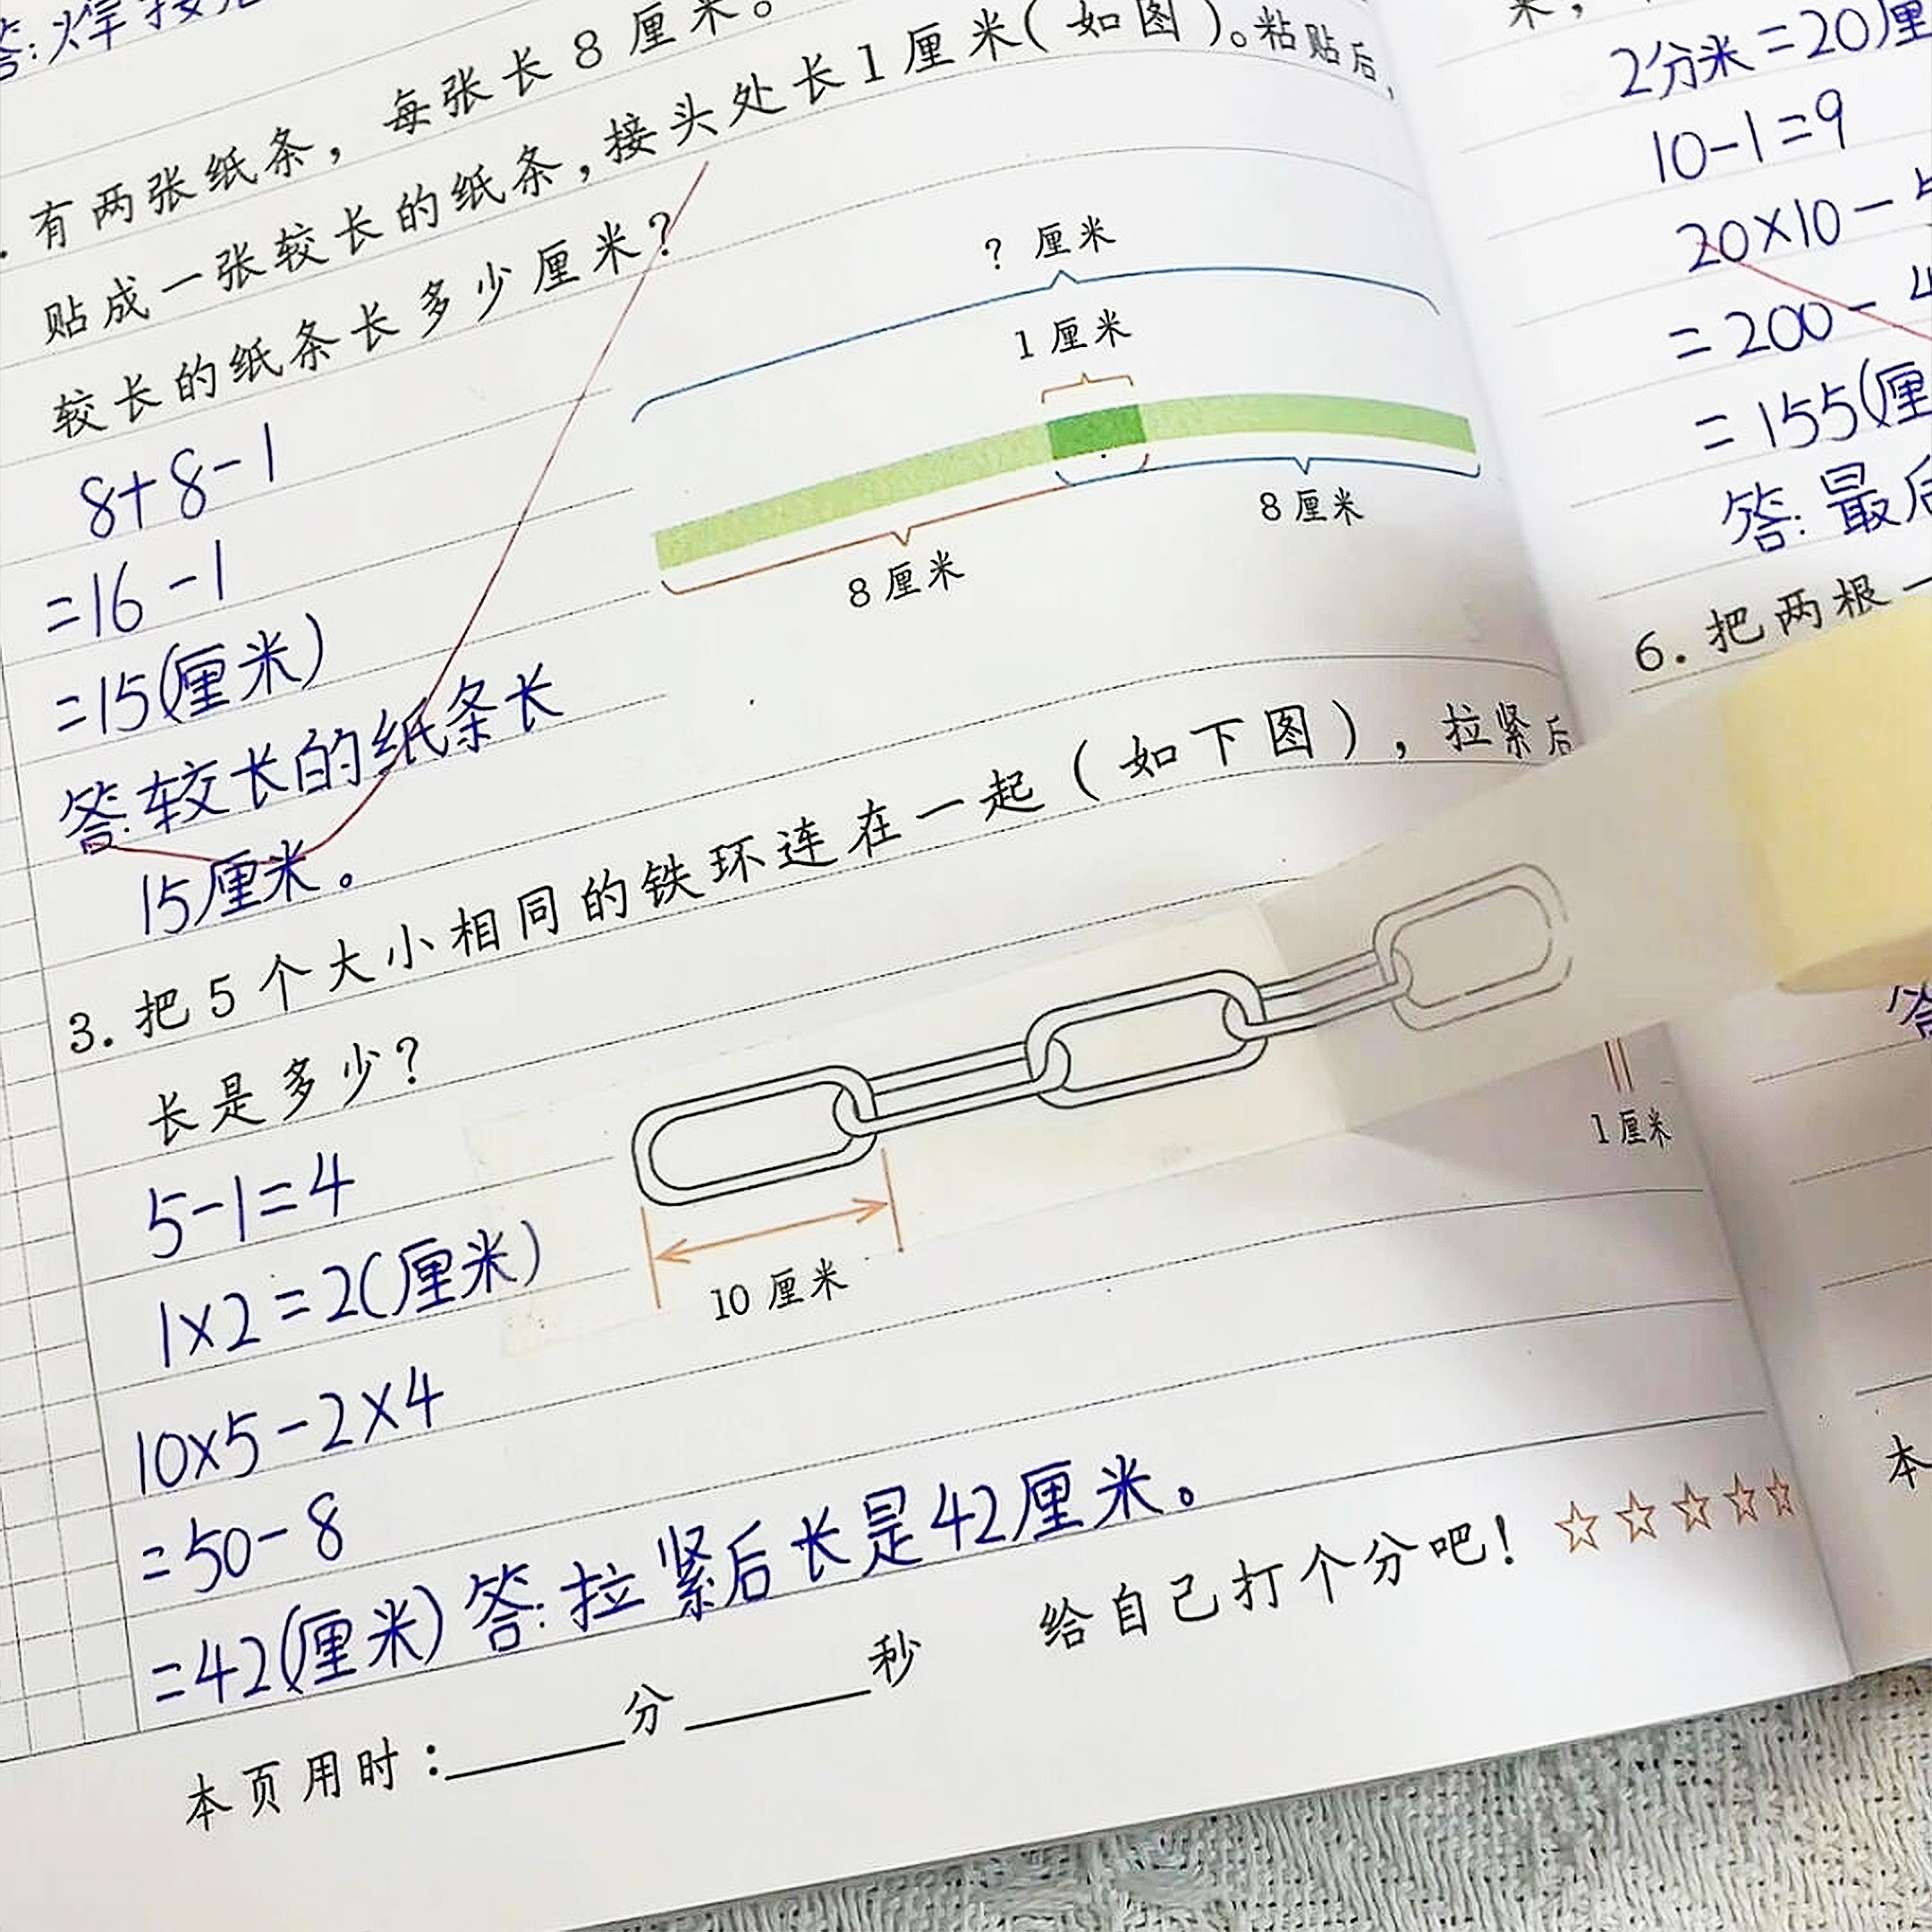 答:焊接
有两张纸条，每张长8厘米。
贴成一张较长的纸条，接头处长1厘米(如图)。粘贴后，
较长的纸条长多少厘米?
8+8-1
=16-1
=15(厘米)
答:较长的纸条长
15厘米。
? 厘米
1 厘米
8 厘米
8 厘米
3.把5个大小相同的铁环连在一起(如下图)，拉紧后
长是多少?
10 厘米
1 厘米
5-1=4
1×2=2(厘米)
10×5-2×4
=50-8
=42(厘米) 答:拉紧后长是42厘米。
本页用时:____分____秒 给自己打个分吧! ☆☆☆☆☆
米，
2分米=20厘
10-1=9
20×10-
=200-4
=155(厘
答:最后
6.把两根一
答
本